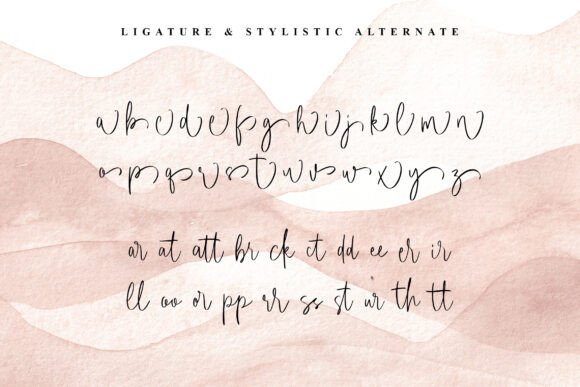 LIGATURE & STYLISTIC ALTERNATE
a b c d e f g h i j k l m n
o p q r s t u v w x y z
ar at att br ck ct dd ee er ir
ll oo or pp rr ss st ur th tt